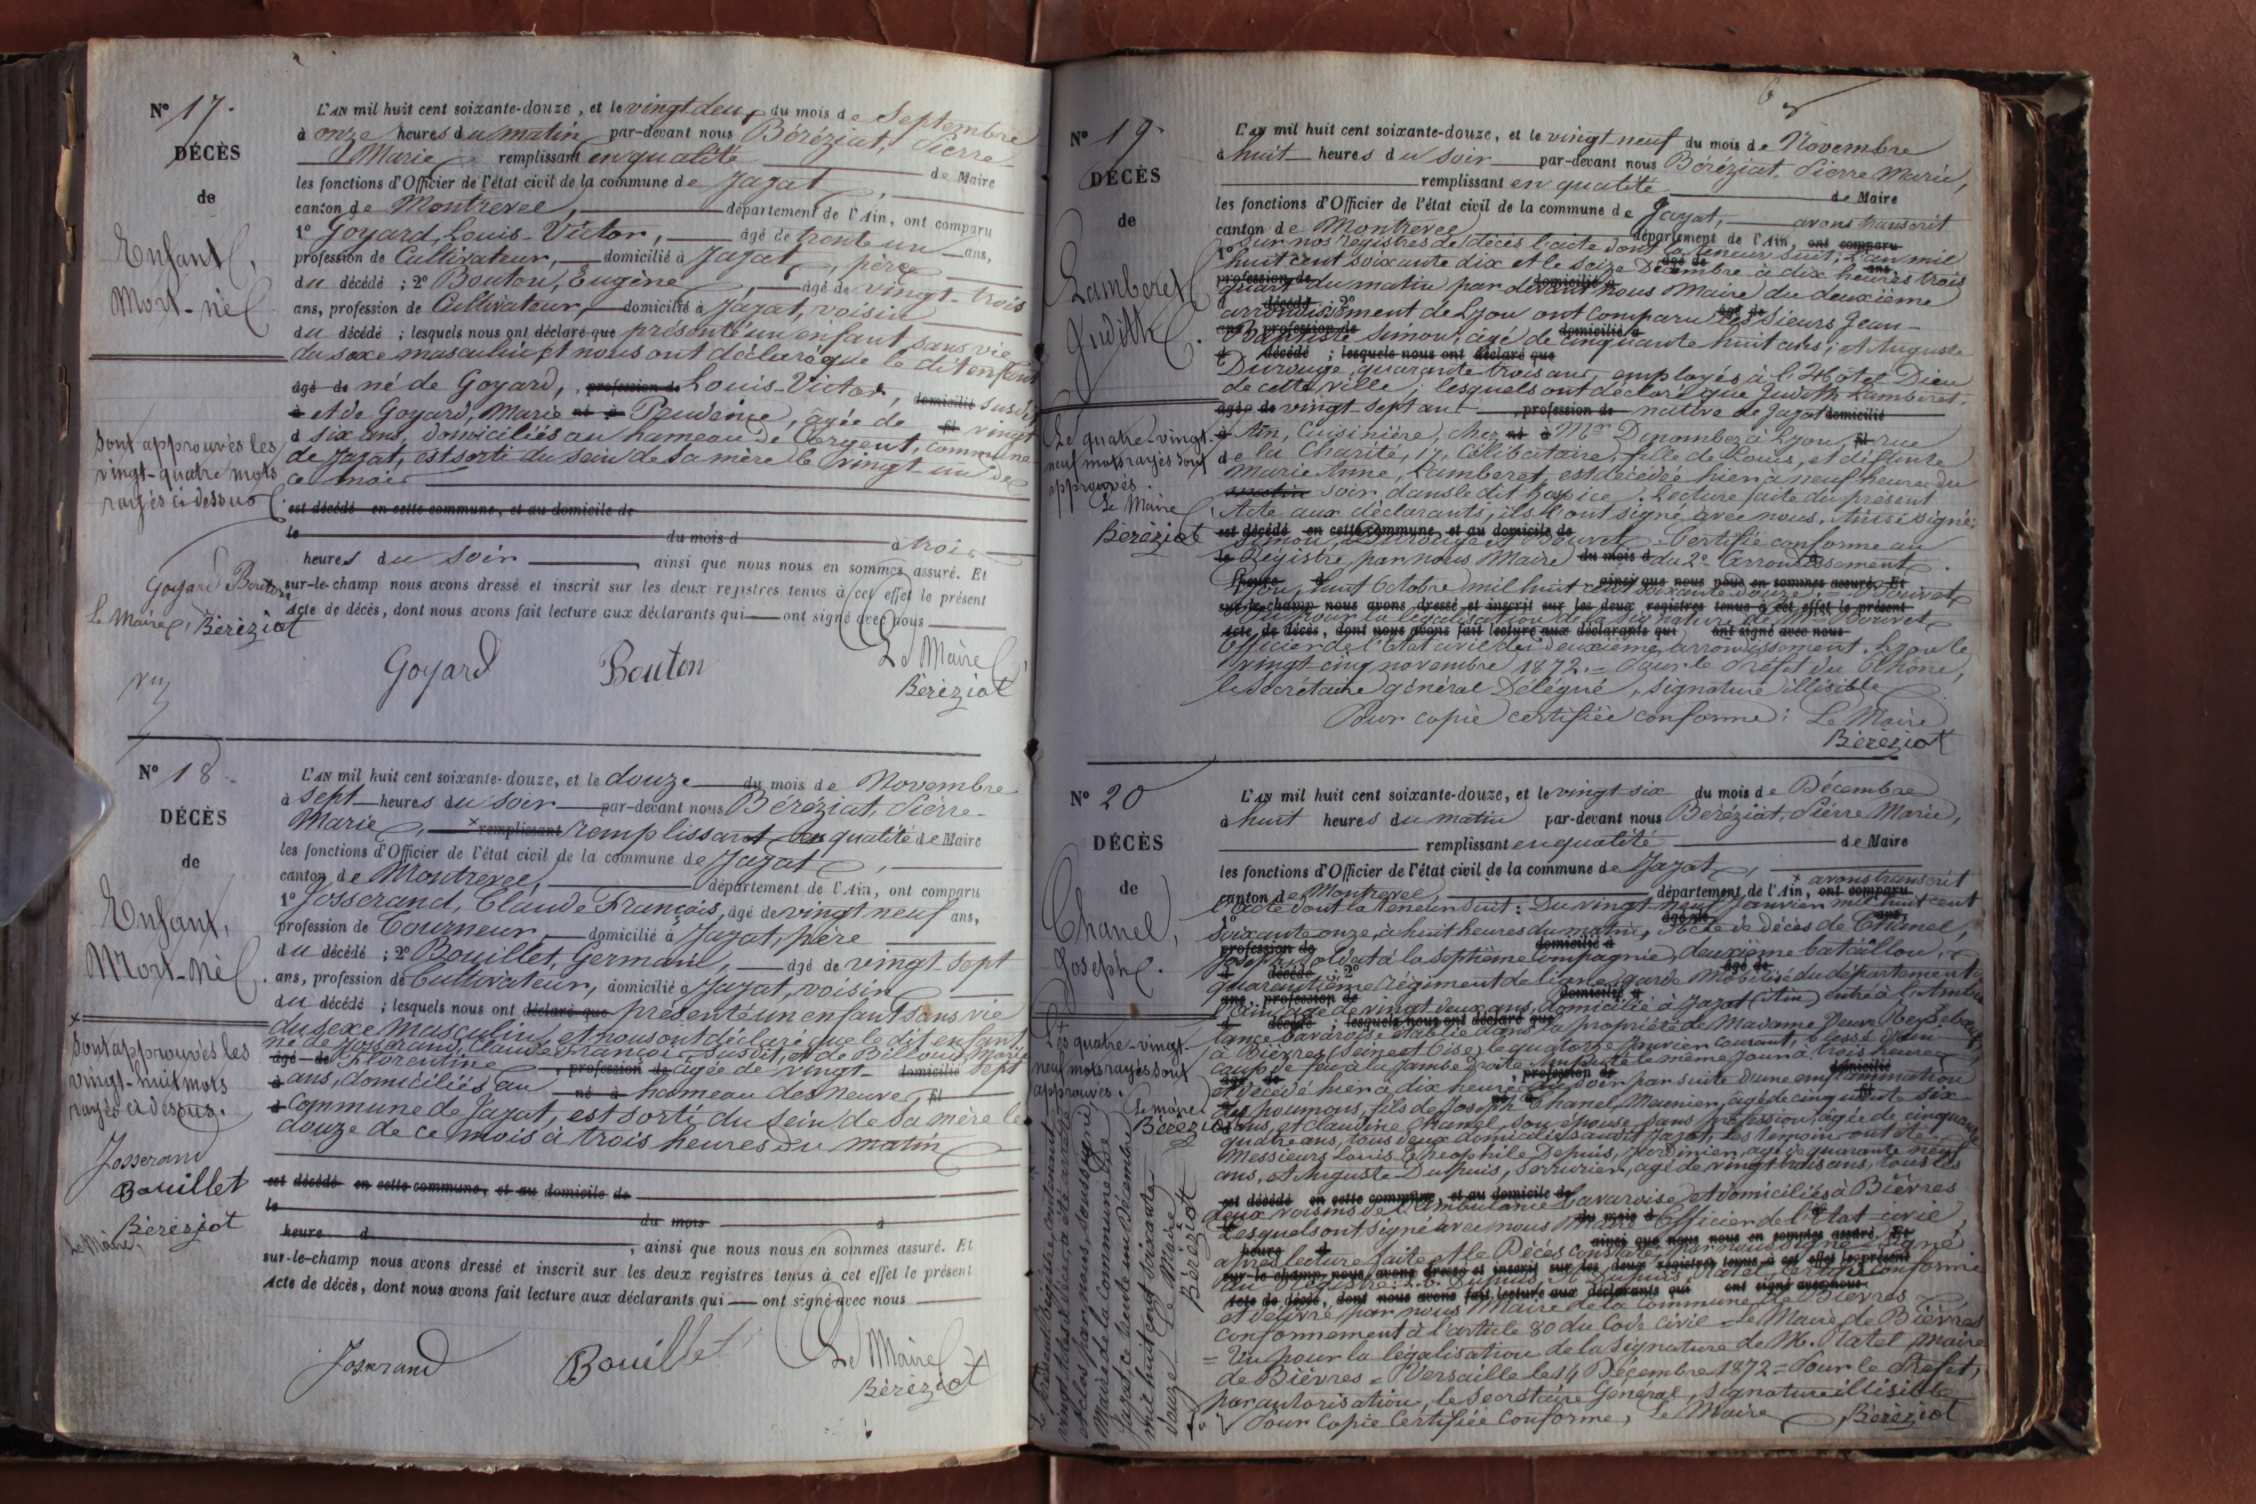 N° 17.
DÉCÈS
de
Enfant,
Mort-né
L'AN mil huit cent soixante-douze, et le vingt deux du mois de Septembre
à onze heures du matin par-devant nous Béréziat, Pierre
Marie remplissant en qualité de Maire
les fonctions d'Officier de l'état civil de la commune de Jayat,
canton de Montrevel, département de l'Ain, ont comparu
1° Goyard, Louis-Victor, âgé de trente un ans,
profession de Cultivateur, domicilié à Jayat, père
du décédé ; 2° Bouton, Eugène, âgé de vingt-trois
ans, profession de Cultivateur, domicilié à Jayat, voisin
du décédé ; lesquels nous ont déclaré que présenté un enfant sans vie
du sexe masculin et nous ont déclaré que le dit enfant
âgé de né de Goyard, profession de Louis-Victor, domicilié susdit
à et de Goyard, Marie né à Prudence, âgée de fil vingt
d six ans, domiciliés au hameau de Cergent, commune
de Jayat, est sorti du sein de sa mère le vingt un de
ce mois
est décédé en cette commune, et au domicile de
le du mois d à trois
heures du soir, ainsi que nous nous en sommes assuré. Et
sur-le-champ nous avons dressé et inscrit sur les deux registres tenus à cet effet le présent
Acte de décès, dont nous avons fait lecture aux déclarants qui ont signé avec nous
Goyard Bouton Le Maire
Béréziat
Sont approuvés les
vingt-quatre mots
rayés ci-dessus
Goyard Bouton
Le Maire, Béréziat
N° 18.
DÉCÈS
de
Enfant,
Mort-né.
L'AN mil huit cent soixante-douze, et le douze du mois de Novembre
à sept heures du soir par-devant nous Béréziat, Pierre-
Marie, remplissant remplissant en qualité de Maire
les fonctions d'Officier de l'état civil de la commune de Jayat,
canton de Montrevel, département de l'Ain, ont comparu
1° Josserand, Claude François, âgé de vingt neuf ans,
profession de Tourneur, domicilié à Jayat, père
du décédé ; 2° Bouillet, Germain, âgé de vingt sept
ans, profession de Cultivateur, domicilié à Jayat, voisin
du décédé ; lesquels nous ont déclaré que présenté un enfant sans vie
du sexe masculin, et nous ont déclaré que le dit enfant
né de Josserand, Claude François, susdit, et de Billoud, Marie
âgé de Florentine, profession de âgée de vingt domicilié sept
à ans, domiciliés au né à hameau des Neuve, fil
d commune de Jayat, est sorti du sein de sa mère le
douze de ce mois à trois heures du matin
est décédé en cette commune, et au domicile de
le du mois à
heure d, ainsi que nous nous en sommes assuré. Et
sur-le-champ nous avons dressé et inscrit sur les deux registres tenus à cet effet le présent
Acte de décès, dont nous avons fait lecture aux déclarants qui ont signé avec nous
Josserand Bouillet Le Maire
Béréziat
Sont approuvés les
vingt-huit mots
rayés ci-dessus.
Josserand
Bouillet
Béréziat
Le Maire,
N° 19.
DÉCÈS
de
Lamberet
Judith.
L'AN mil huit cent soixante-douze, et le vingt neuf du mois de Novembre
à huit heures du soir par-devant nous Béréziat, Pierre Marie,
remplissant en qualité de Maire
les fonctions d'Officier de l'état civil de la commune de Jayat, avons transcrit
canton de Montrevel département de l'Ain, ont comparu
sur nos registres de décès l'acte dont la teneur suit, L'an mil
huit cent soixante dix et le seize Décembre à dix heures trois
quart du matin par devant nous Maire du deuxième
arrondissement de Lyon ont comparu les sieurs Jean-
Baptiste Simon, âgé de cinquante huit ans, et Auguste
décédé ; lesquels nous ont déclaré que
Durouge, quarante trois ans, employés à l'Hôtel Dieu
de cette ville, lesquels ont déclaré que Judith Lamberet,
âgé de vingt-sept ans, profession de native de Jayat domicilié
à Ain, Cuisinière, chez né à Mr Denombez à Lyon, fil rue
de la Charité, 17, Célibataire, fille de Louis, et défunte
Marie Anne, Lamberet, est décédée hier à neuf heures du
matin soir, dans le dit hospice. Lecture faite du présent
Acte aux déclarants, ils l'ont signé avec nous. Ainsi signé:
est décédé en cette commune, et au domicile de
Simon, Durouge et Bouvet. Certifié conforme au
le Régistre, par nous Maire du mois d du 2e Arrondissement
heure d ainsi que nous nous en sommes assuré. Et
Lyon, huit Octobre mil huit cent soixante douze. = Bouvet
sur-le-champ nous avons dressé et inscrit sur les deux registres tenus à cet effet le présent
Vu pour la légalisation de la signature de Mr Bouvet
Acte de décès, dont nous avons fait lecture aux déclarants qui ont signé avec nous
Officier de l'Etat civil du deuxième arrondissement. Lyon le
vingt-cinq novembre 1872. = Pour le Préfet du Rhône,
le Secrétaire général Délégué, signature illisible
Pour copie certifiée conforme: Le Maire
Béréziat
Les quatre-vingt-
neuf mots rayés sont
approuvés.
Le Maire
Béréziat
N° 20
DÉCÈS
de
Chanel,
Joseph.
L'AN mil huit cent soixante-douze, et le vingt six du mois de Décembre
à huit heures du matin par-devant nous Béréziat, Pierre Marie,
remplissant en qualité de Maire
les fonctions d'Officier de l'état civil de la commune de Jayat, avons transcrit
canton de Montrevel, département de l'Ain, ont comparu
l'acte dont la teneur suit: Du vingt-neuf Janvier mil huit cent
soixante onze, à huit heures du matin, Acte de Décès de Chanel,
Joseph, soldat à la septième compagnie, deuxième bataillon,
quarantième Régiment de ligne garde Mobilisé du département
de l'Ain, âgé de vingt deux ans, domicilié à Jayat (Ain) entré à l'Ambu
lance Bavaroise établie dans la propriété de Madame Veuve
à Bièvres (Seine et Oise) le quatorze Janvier courant, blessé d'un
coup de feu à la Jambe droite, amputé le même jour à trois heures,
et décédé hier à dix heures du soir par suite d'une inflammation
des poumons, fils de Joseph Chanel, Meunier, âgé de cinquante six
ans, et Claudine Chanel, son épouse, sans profession, âgée de cinquante
quatre ans, tous deux domiciliés audit Jayat, les témoins ont été
Messieurs Louis Théophile Depuis, Jardinier, âgé de quarante neuf
ans, et Auguste Dupuis, Serrurier, âgé de vingt trois ans, tous les
est décédé en cette commune, et au domicile de
deux voisins de l'ambulance Bavaroise, et domiciliés à Bièvres
Lesquels ont signé avec nous Maire Officier de l'Etat civil,
ainsi que nous nous en sommes assuré. Et
après lecture faite et le Décès constaté par nous
sur-le-champ nous avons dressé et inscrit sur les deux registres tenus à cet effet le présent
Acte de décès, dont nous avons fait lecture aux déclarants qui ont signé avec nous
et délivré par nous Maire de la commune de Bièvres
conformément à l'article 80 du Code civil = Le Maire de Bièvres
= Vu pour la légalisation de la signature de M. Platel maire
de Bièvres = Versaille le 14 Décembre 1872 = Pour le Préfet,
par autorisation, le Secrétaire Général, signature illisible
Pour Copie Certifiée Conforme, Le Maire Béréziat
Les quatre-vingt-
neuf mots rayés sont
approuvés.
Le maire
Béréziat
Le présent Registre, contenant
vingt actes de décès, a été arrêté
et clos par nous, soussigné
Maire de la commune de
Jayat, ce trente un Décembre
mil huit cent soixante
douze Le Maire
Béréziat